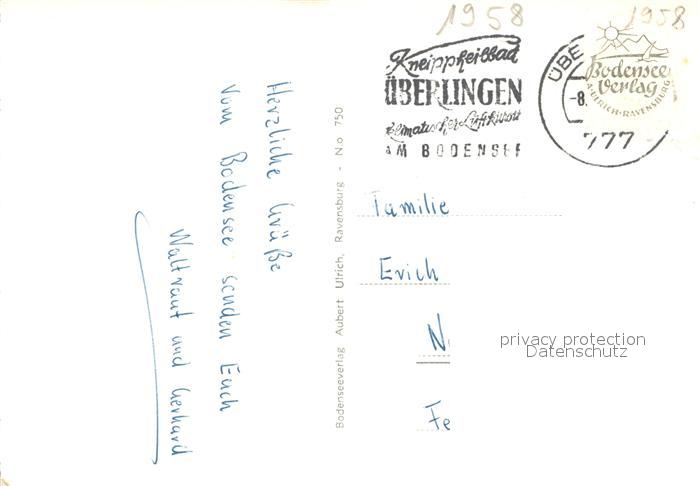 1958
1958
Kneippheilbad
ÜBERLINGEN
klimatischer Luftkurort
AM BODENSEE
ÜBE
-8.
777
Bodensee
Verlag
A. ULRICH-RAVENSBURG
Herzliche Grüße
vom Bodensee senden Euch
Waltraut und Gerhard
Bodenseeverlag Aubert Ulrich, Ravensburg - N.o 750
Familie
Erich
N.
Fe
privacy protection
Datenschutz